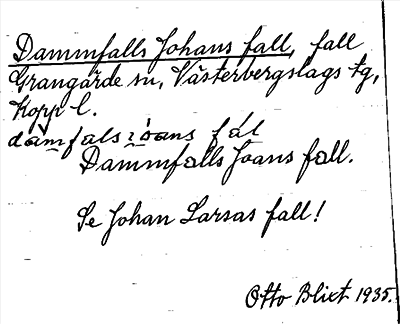 Dammfalls Johans fall, fall
Grangärde sn, Västerbergslags tg,
Kopp l.
Dammfalls Joans fall.
Se Johan Larsas fall!
Otto Blixt 1935.